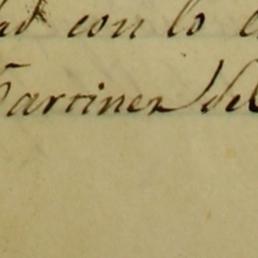 ad con lo e
Martinez del